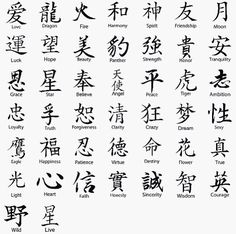 愛 龍 火 和 神 友 月
Love Dragon Fire Harmony Spirit Friendship Moon
運 望 美 豹 強 貴 安
Luck Hope Beauty Panther Strength Tranquility
恩 星 奉 天使 平 虎 志
Grace Star Angel Peace Tiger Ambition
忠 孚 恕 清 狂 夢 性
Loyalty Truth Forgiveness Clarity Crazy Dream Sexy
鷹 福 忍 德 命 花 真
Eagle Happiness Patience Virtue Destiny Flower True
光 心 信 實 誠 智 英
Light Heart Faith Honesty Sincerity Wisdom Courage
野 星
Wild Live